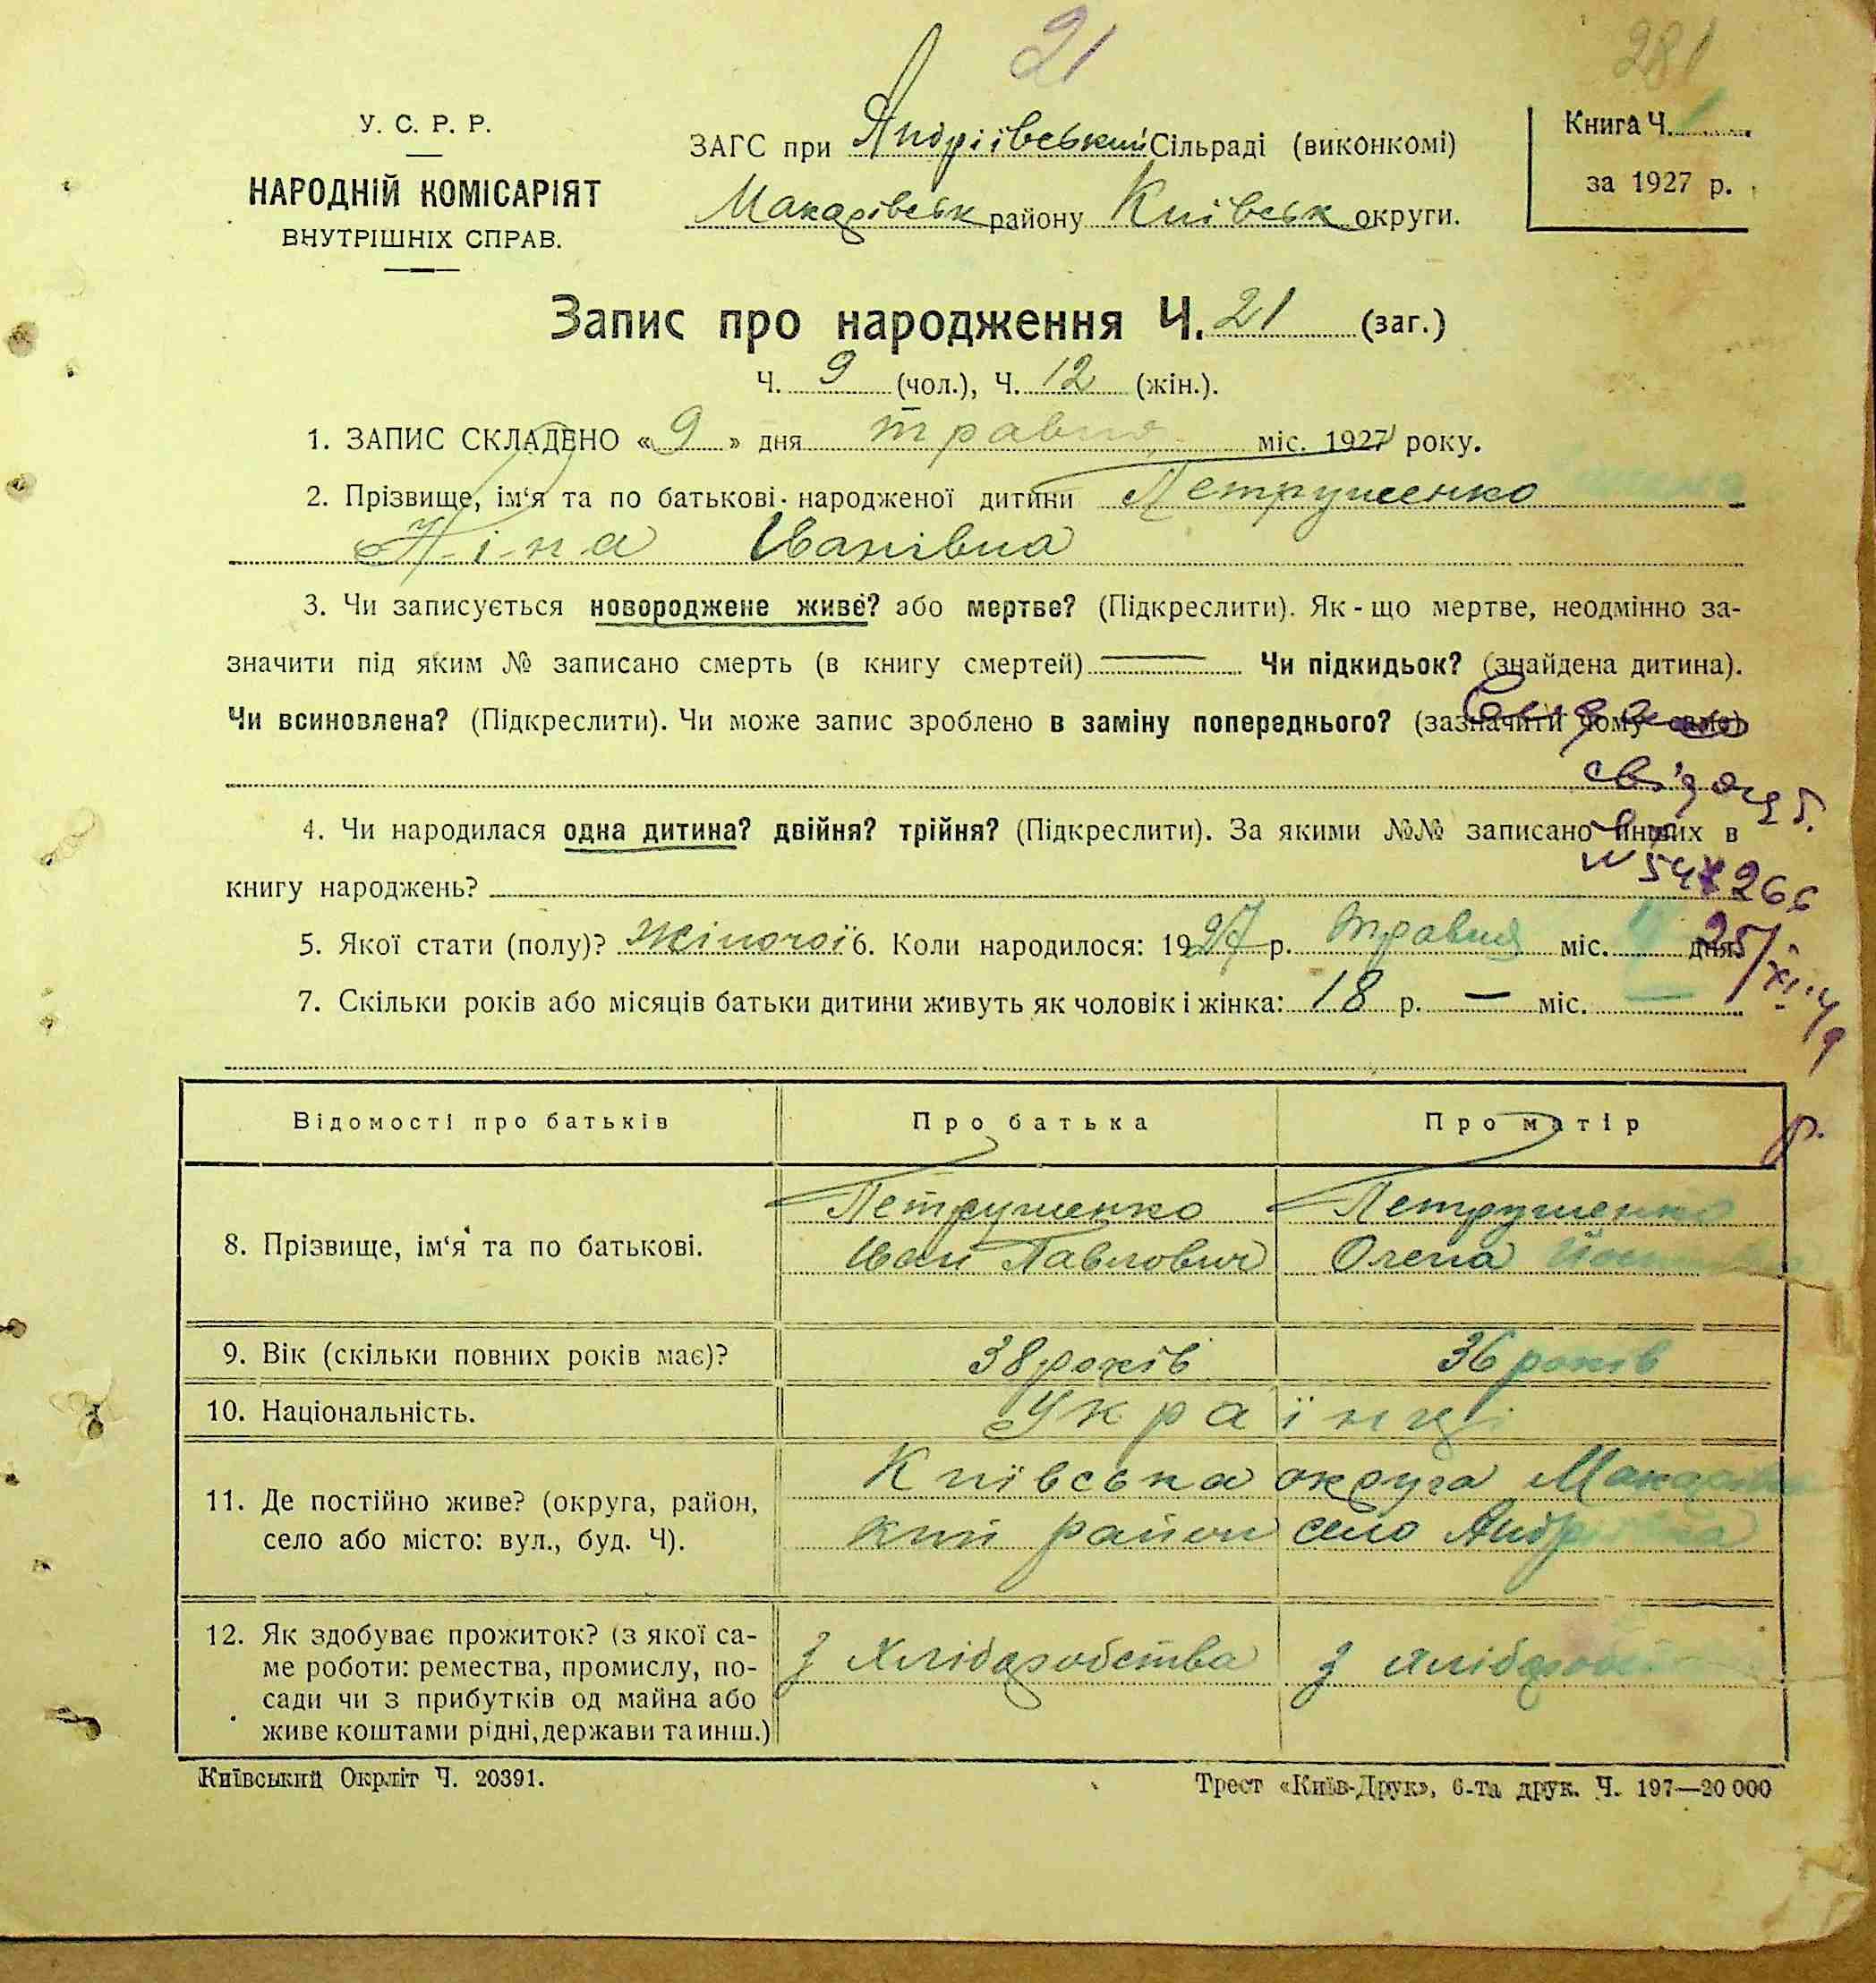 21
281
У. С. Р. Р.
НАРОДНІЙ КОМІСАРІЯТ
ВНУТРІШНІХ СПРАВ.
ЗАГС при Андріївський Сільраді (виконкомі)
Макарівськ району Київськ округи.
Книга Ч.
за 1927 р.
Запис про народження Ч. 21 (заг.)
Ч. 9 (чол.), Ч. 12 (жін.).
1. ЗАПИС СКЛАДЕНО « 9 » дня травня міс. 1927 року.
2. Прізвище, ім‘я та по батькові народженої дитини Петрушенко
Ніна Іванівна
3. Чи записується новороджене живе? або мертве? (Підкреслити). Як-що мертве, неодмінно за-
значити під яким № записано смерть (в книгу смертей) Чи підкидьок? (знайдена дитина).
Чи всиновлена? (Підкреслити). Чи може запис зроблено в заміну попереднього? (зазначити чому саме)
4. Чи народилася одна дитина? двійня? трійня? (Підкреслити). За якими №№ записано инших в
книгу народжень?
5. Якої стати (полу)? жіночої 6. Коли народилося: 1927 р. травня міс. дня
7. Скільки років або місяців батьки дитини живуть як чоловік і жінка: 18 р. — міс. —
Відомості про батьків Про батька Про матір
8. Прізвище, ім‘я та по батькові.
Петрушенко Петрушенко
Іван Павлович Олена
9. Вік (скільки повних років має)? 38 років 36 років
10. Національність. Українці
11. Де постійно живе? (округа, район,
село або місто: вул., буд. Ч).
Київська округа Макарівсь
кий район село Андріївка
12. Як здобуває прожиток? (з якої са-
ме роботи: ремества, промислу, по-
сади чи з прибутків од майна або
живе коштами рідні, держави та инш.)
З хліборобства З хліборобства
Київський Окрліт Ч. 20391.
Трест «Київ-Друк», 6-та друк. Ч. 197—20 000